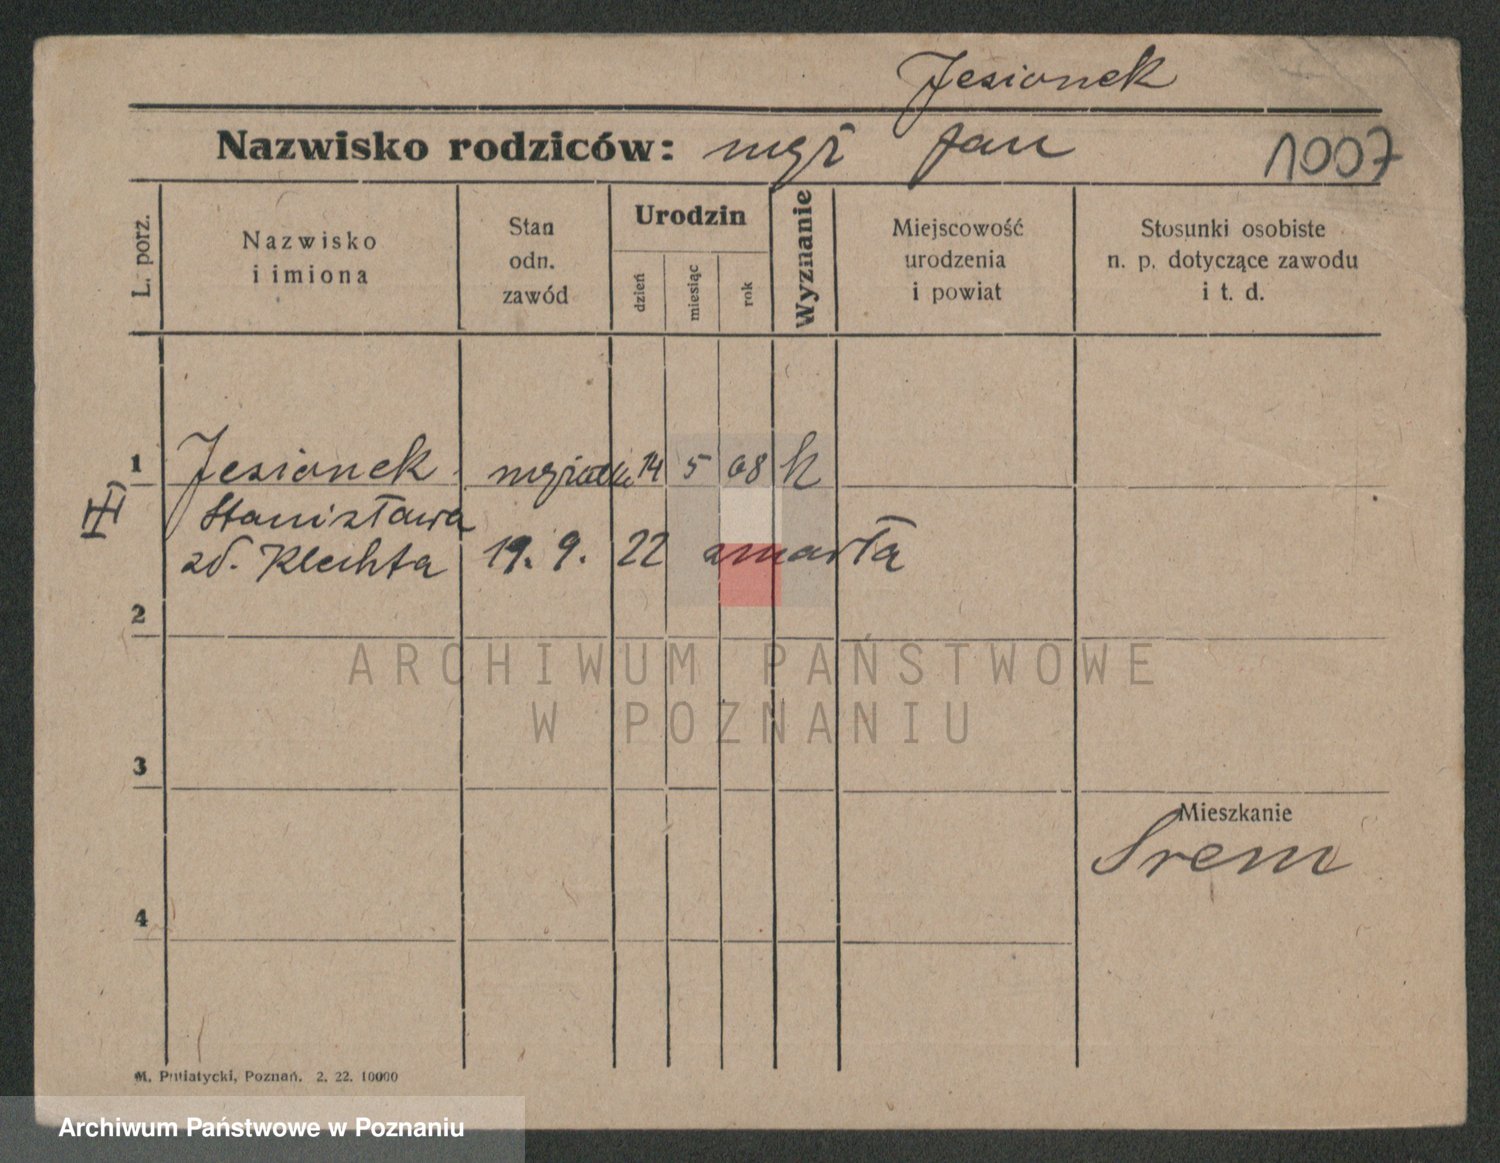 Jesionek
Nazwisko rodziców: mąż Jan
1007
L. porz.
Nazwisko
i imiona
Stan
odn.
zawód
Urodzin
dzień
miesiąc
rok
Wyznanie
Miejscowość
urodzenia
i powiat
Stosunki osobiste
n. p. dotyczące zawodu
i t. d.
1 Jesionek mężatka 14 5 08 k
Stanisława
zd. Klechta 19. 9. 22 zmarła
2
ARCHIWUM PAŃSTWOWE
W POZNANIU
3
Mieszkanie
Śrem
4
M. Putiatycki, Poznań. 2. 22. 10000
Archiwum Państwowe w Poznaniu